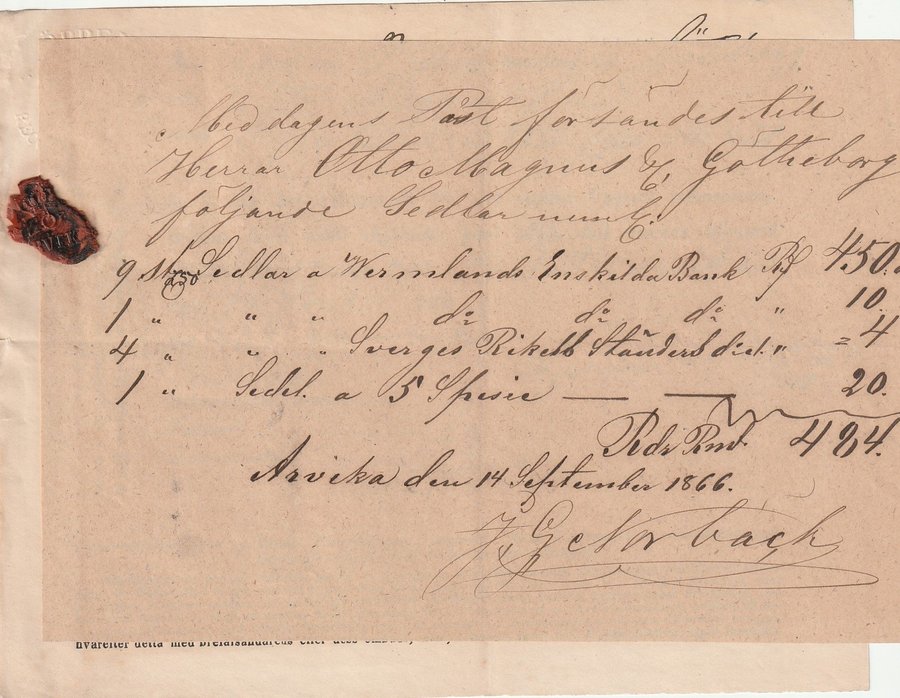 Med dagens Post försändes till
Herrar Otto Magnus & C, Götheborg
följande Sedlar neml.
9 st a 50 Sedlar a Wermlands Enskilda Bank Rd 450.
1 " " " do do do " 10.
4 " " " Sverges Rikets Ständers did. " = 4
1 " Sedel. a 5 Spesie — — 20.
Rdr Rmt. 484.
Arvika den 14 September 1866.
J. G. Norbäck
ARVIK
hvarefter detta med brefafsändarens eller dess